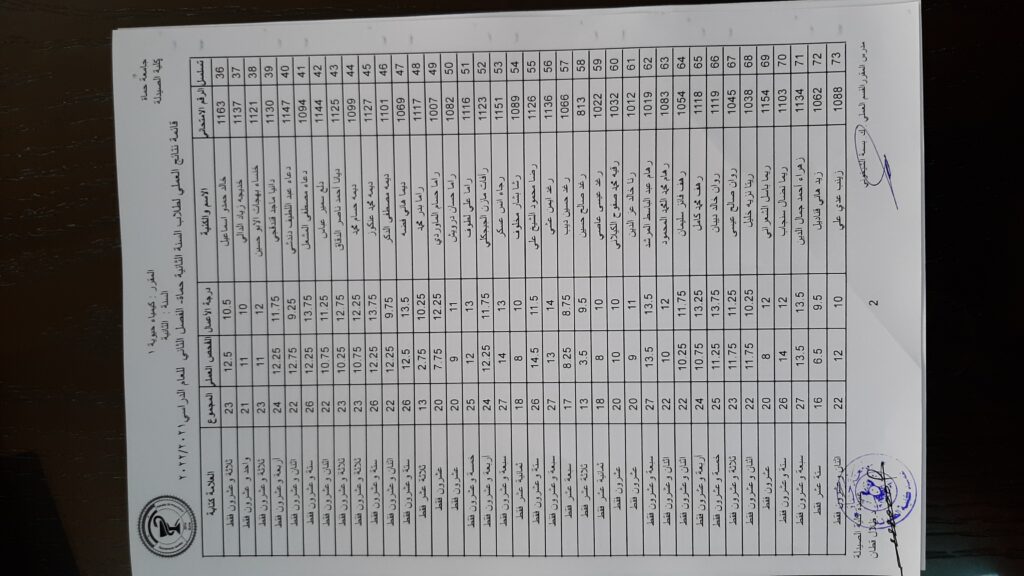 جامعة حماة
كلية الصيدلة
المقرر : كيمياء حيوية ١
السنة : الثانية
قائمة نتائج العملي لطلاب السنة الثانية حماة- الفصل الثاني للعام الدراسي ٢٠٢٢/٢٠٢١
تسلسل الرقم الامتحاني الاسم والكنية درجة الأعمال الفحص العملي المجموع العلامة كتابة
36 1163 خالد حمدو اسماعيل 10.5 12.5 23 ثلاثة و عشرون فقط
37 1137 خديجه زياد الدالي 10 11 21 واحد و عشرون فقط
38 1121 خنساء بهجات الابو حسن 12 11 23 ثلاثة و عشرون فقط
39 1130 دانيا ماجد 11.75 12.25 24 اربعة و عشرون فقط
40 1147 دعاء عبد اللطيف دندشي 9.25 12.75 22 اثنان و عشرون فقط
41 1094 دعاء مصطفى المشعل 13.75 12.25 26 ستة و عشرون فقط
42 1144 دلع سمير عباس 11.25 10.75 22 اثنان و عشرون فقط
43 1125 ديانا احمد ناصر الدقاق 12.75 10.25 23 ثلاثة و عشرون فقط
44 1099 ديمه حسام 12.25 10.75 23 ثلاثة و عشرون فقط
45 1127 ديمه محمد عنكوز 13.75 12.25 26 ستة و عشرون فقط
46 1101 ديمه مصطفى 9.75 12.25 22 اثنان و عشرون فقط
47 1069 ديما هاني فضه 13.5 12.5 26 ستة و عشرون فقط
48 1117 راما بدر 10.25 2.75 13 ثلاثة عشر فقط
49 1007 راما حسام الماوردي 12.25 7.75 20 عشرون فقط
50 1082 راما حسان درويش 11 9 20 عشرون فقط
51 1116 راما علي لطوف 13 12 25 خمسة و عشرون فقط
52 1123 رأفات مازن الجيجكلي 11.75 12.25 24 اربعة و عشرون فقط
53 1151 رجاء انس عسكر 13 14 27 سبعة و عشرون فقط
54 1089 رشا بشار مخلوف 10 8 18 ثمانية عشر فقط
55 1126 رضا محمود الشيخ علي 11.5 14.5 26 ستة و عشرون فقط
56 1136 رغد ايمن عشي 14 13 27 سبعة و عشرون فقط
57 1066 رغد حسين ديب 8.75 8.25 17 سبعة عشر فقط
58 813 رغد صالح حسين 9.5 3.5 13 ثلاثة عشر فقط
59 1022 رغد عيسى عاصي 10 8 18 ثمانية عشر فقط
60 1032 رقيه محمد صفوح الكيلاني 10 10 20 عشرون فقط
61 1012 رنا خالد عز الدين 11 9 20 عشرون فقط
62 1019 رهام عبد الباسط المرشد 13.5 13.5 27 سبعة و عشرون فقط
63 1083 رهام المحمود 12 10 22 اثنان و عشرون فقط
64 1054 رهف فائز سليمان 11.75 10.25 22 اثنان و عشرون فقط
65 1118 رهف محي كامل 13.25 10.75 24 اربعة و عشرون فقط
66 1119 روان خالد نيبان 13.75 11.25 25 خمسة و عشرون فقط
67 1045 روان صالح عيسى 11.25 11.75 23 ثلاثة و عشرون فقط
68 1038 ريتا نزيه خليل 10.25 11.75 22 اثنان و عشرون فقط
69 1154 ريما باسل الشعراني 12 8 20 عشرون فقط
70 1103 ريما نضال سنجاب 12 14 26 ستة و عشرون فقط
71 1134 زهراء احمد جمال الدين 13.5 13.5 27 سبعة و عشرون فقط
72 1062 زيد هاني قناديل 9.5 6.5 16 ستة عشر فقط
73 1088 زينب عدي علي 10 12 22 اثنان و عشرون فقط
مدرس المقرر لقسم العملي
2